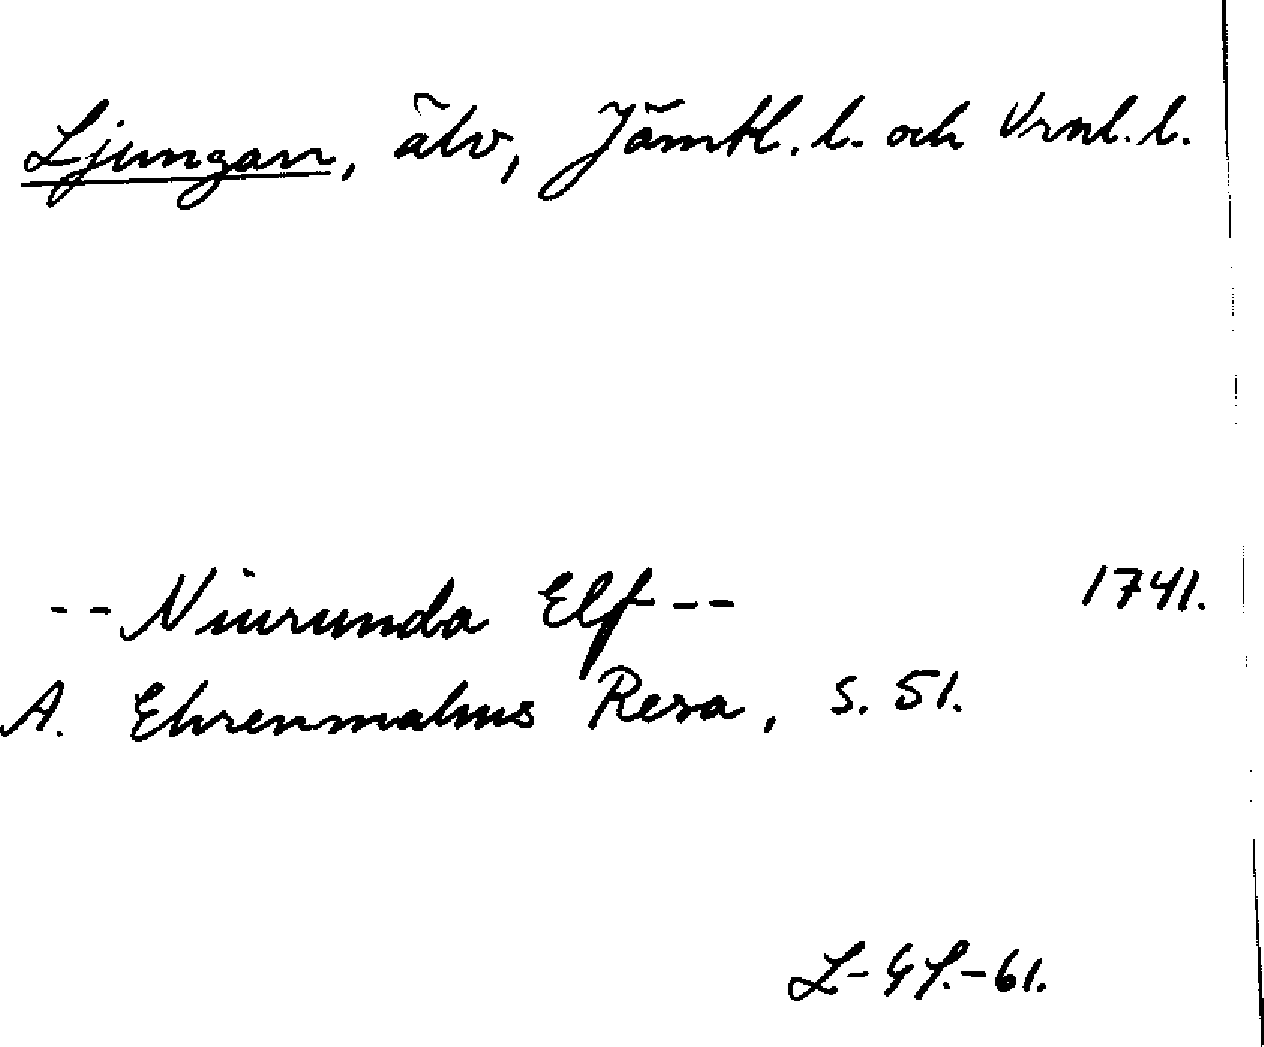 Ljungan, älv, Jämtl. l. och Vrnl. l.
--Niurunda Elf-- 1741.
A. Ehrenmalms Resa, s. 51.
L-G L.-61.